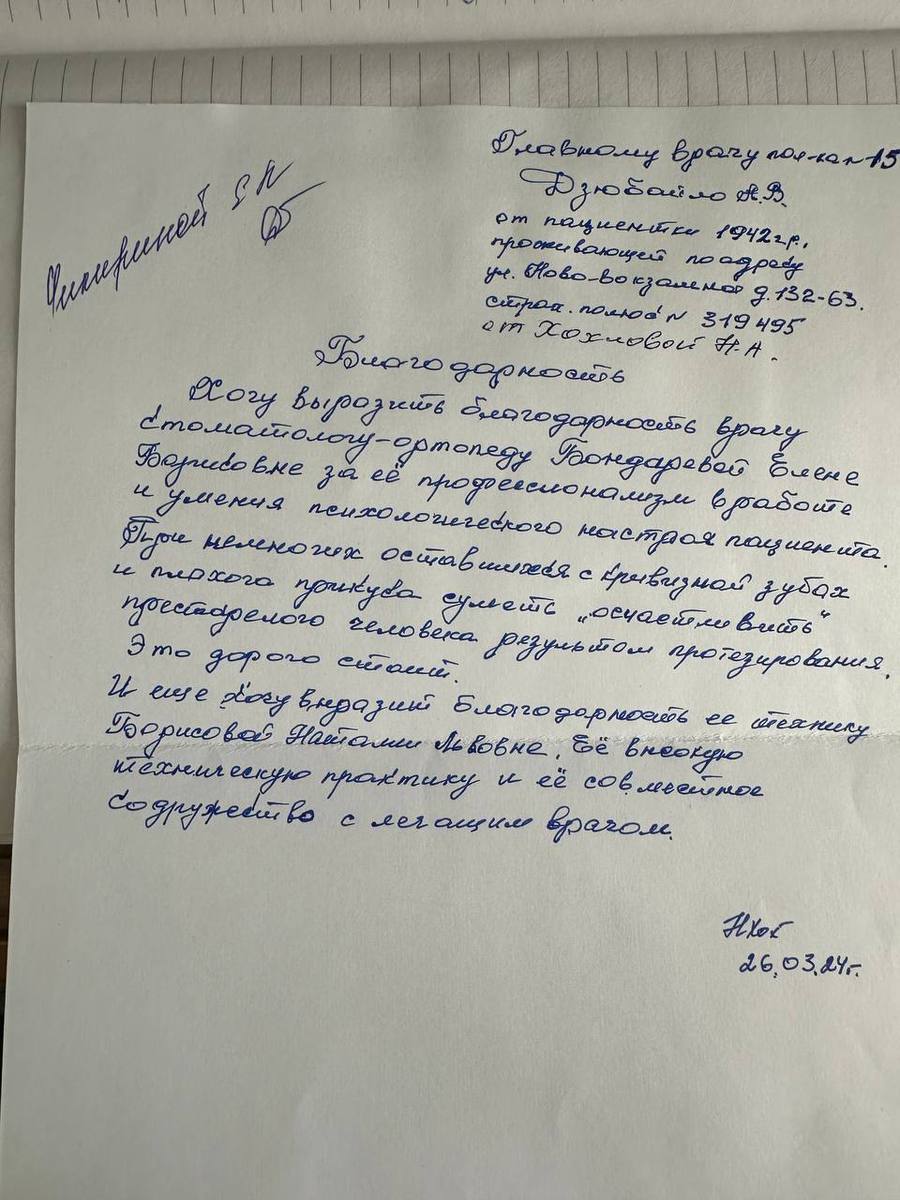 Главному врачу пол-ка № 15
Дзюбайло А.В.
от пациентки 1942 г.р.
проживающей по адресу
ул. Ново-вокзальной д. 132-63.
страх. полюс № 319495
от Хохловой Н.А.
Чикириной
Благодарность
Хочу выразить благодарность врачу
стоматологу-ортопеду Бондаревой Елене
Борисовне за её профессионализм в работе
и умения психологического настроя пациента.
При немногих оставшихся с кривизной зубах
и плохога прикуса суметь „осчастливить"
престарелого человека результом протезирования.
Это дорого стоит.
И еще хочу выразит благодарность ее технику
Борисовой Наталии Львовне. Её высокую
техническую практику и её совместное
содружество с лечащим врачом.
НХох
26.03.24г.